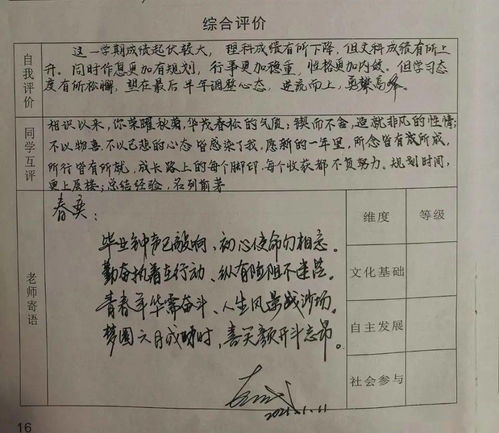 综合评价
自我评价
这一学期成绩起伏较大，理科成绩有所下降，但文科成绩有所上
升。同时作息更加有规划，行事更加稳重，性格更加内敛。但学习态
度有所松懈，望在最后半年调整心态，逆流而上，勇攀高峰
同学互评
相识以来，你荣曜秋菊，华茂春松的气质；锲而不舍，造就非凡的性情；
不以物喜不以己悲的心态皆感染了我，愿新的一年里，所念皆有所成，
所行皆有所就，成长路上的每个脚印，每个收获都不负努力。规划时间，
更上层楼；总结经验，名列前茅
老师寄语
春奕：
毕业钟声已敲响，初心使命勿相忘。
勤奋执着在行动、纵有险阻不迷茫。
青春年华需奋斗、人生风景战沙场。
梦圆六月成功时，喜笑颜开斗志昂。
2021.1.11
维度 等级
文化基础
自主发展
社会参与
16